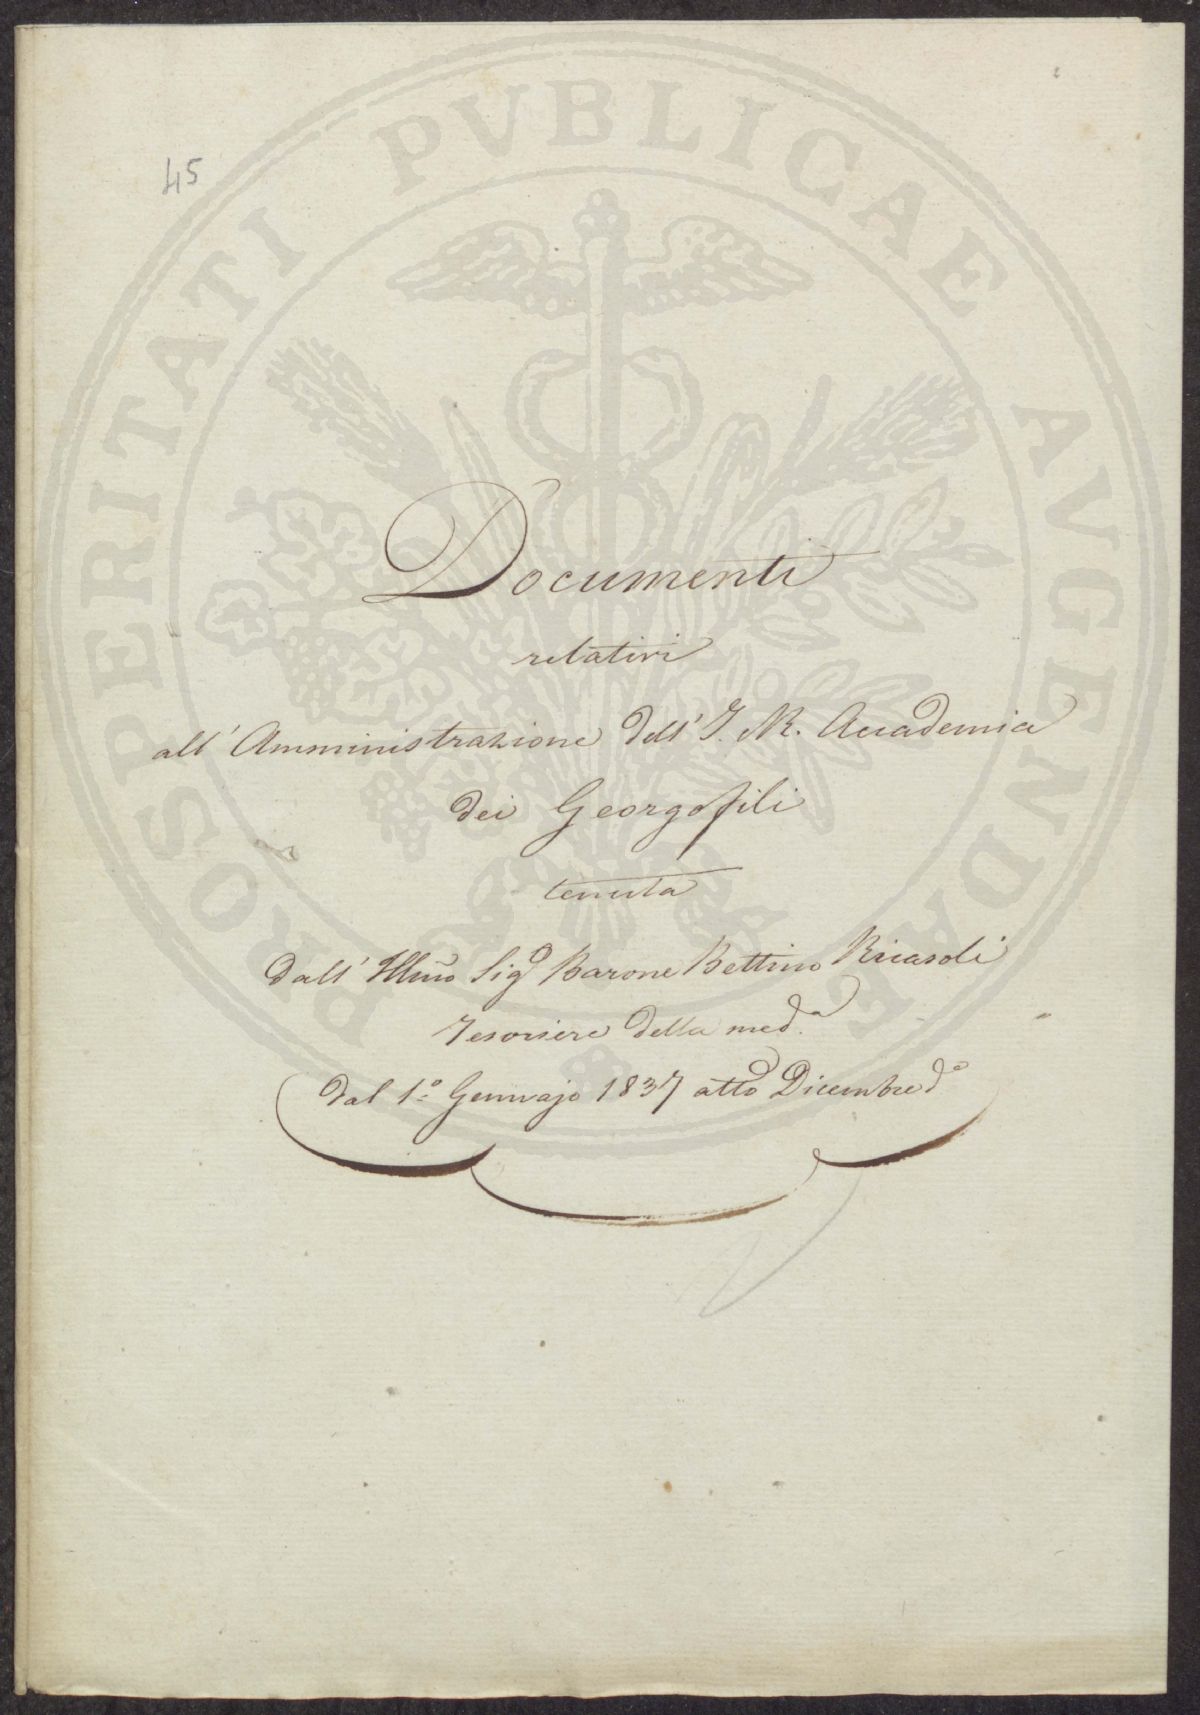 PROSPERITATI PVBLICAE AVGENDAE
45
Documenti
relativi
all' Amministrazione dell' I. R. Accademia
dei Georgofili
tenuta
dall' Illmo Sigr Barone Bettino Ricasoli
Tesoriere della meda.
dal 1.o Gennajo 1837 a tto Dicembre do